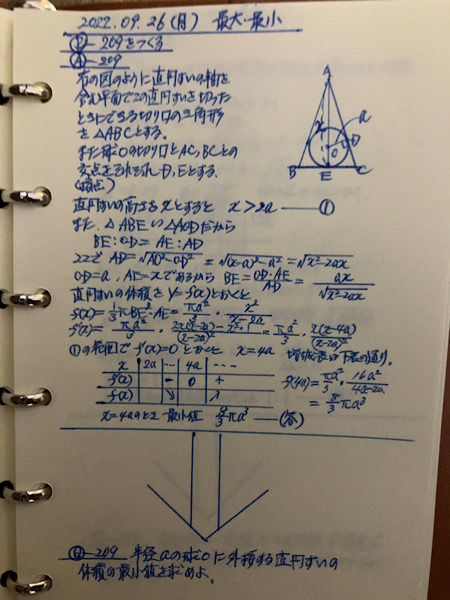 2022.09.26(月) 最大・最小
Ⓟ-209をつくる
Ⓐ-209
右の図のように直円すいの軸を
含む平面でこの直円すいを切った
ときにできる切り口の三角形
を△ABCとする。
また球Oの切り口とAC,BCとの
交点をそれぞれD,Eとする。
(接点)
直円すいの高さをxとすると x>2a ―①
また、△ABE∽△AODだから
BE:OD=AE:AD
ここで AD=√AO²-OD²=√(x-a)²-a²=√x²-2ax
OD=a, AE=xであるから BE=OD・AE/AD=ax/√x²-2ax
直円すいの体積をy=f(x)とおくと
f(x)=1/3πBE²・AE=πa²/3・x²/x-2a
f'(x)=πa²/3・2x(x-2a)-x²・1/(x-2a)²=πa²/3・x(x-4a)/(x-2a)²
①の範囲でf'(x)=0とおくと x=4a 増減表は下表の通り。
x 2a … 4a …
f'(x) - 0 +
f(x) ↘ ↗
f(4a)=πa²/3・16a²/4a-2a
=8/3πa³
x=4aのとき 最小値 8/3πa³ ―(答)
A
x
a
D
O
B E C
Ⓠ-209 半径aの球Oに外接する直円すいの
体積の最小値を求めよ。